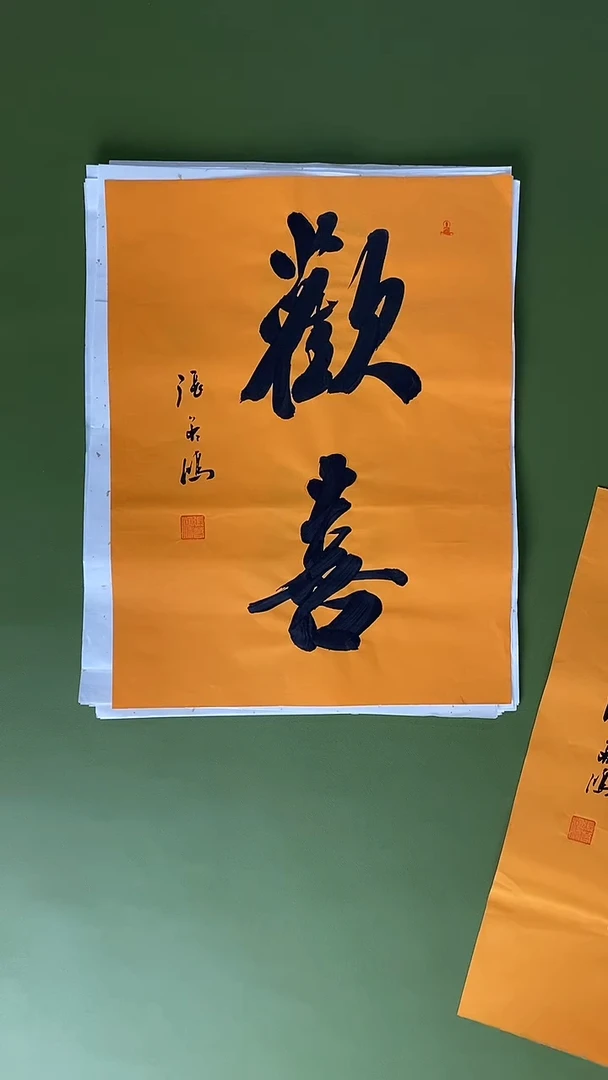 歡
喜
張若鴻